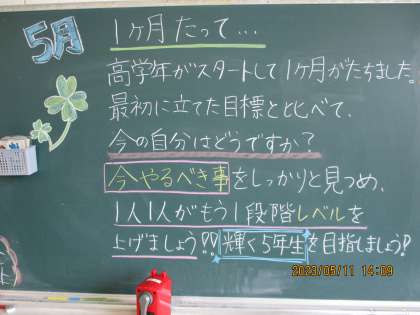 5月
1ヶ月たって…
高学年がスタートして1ヶ月がたちました。
最初に立てた目標と比べて、
今の自分はどうですか？
今やるべき事をしっかりと見つめ、
1人1人がもう1段階レベルを
上げましょう!!輝く5年生を目指しましょう!
2023/05/11 14:09